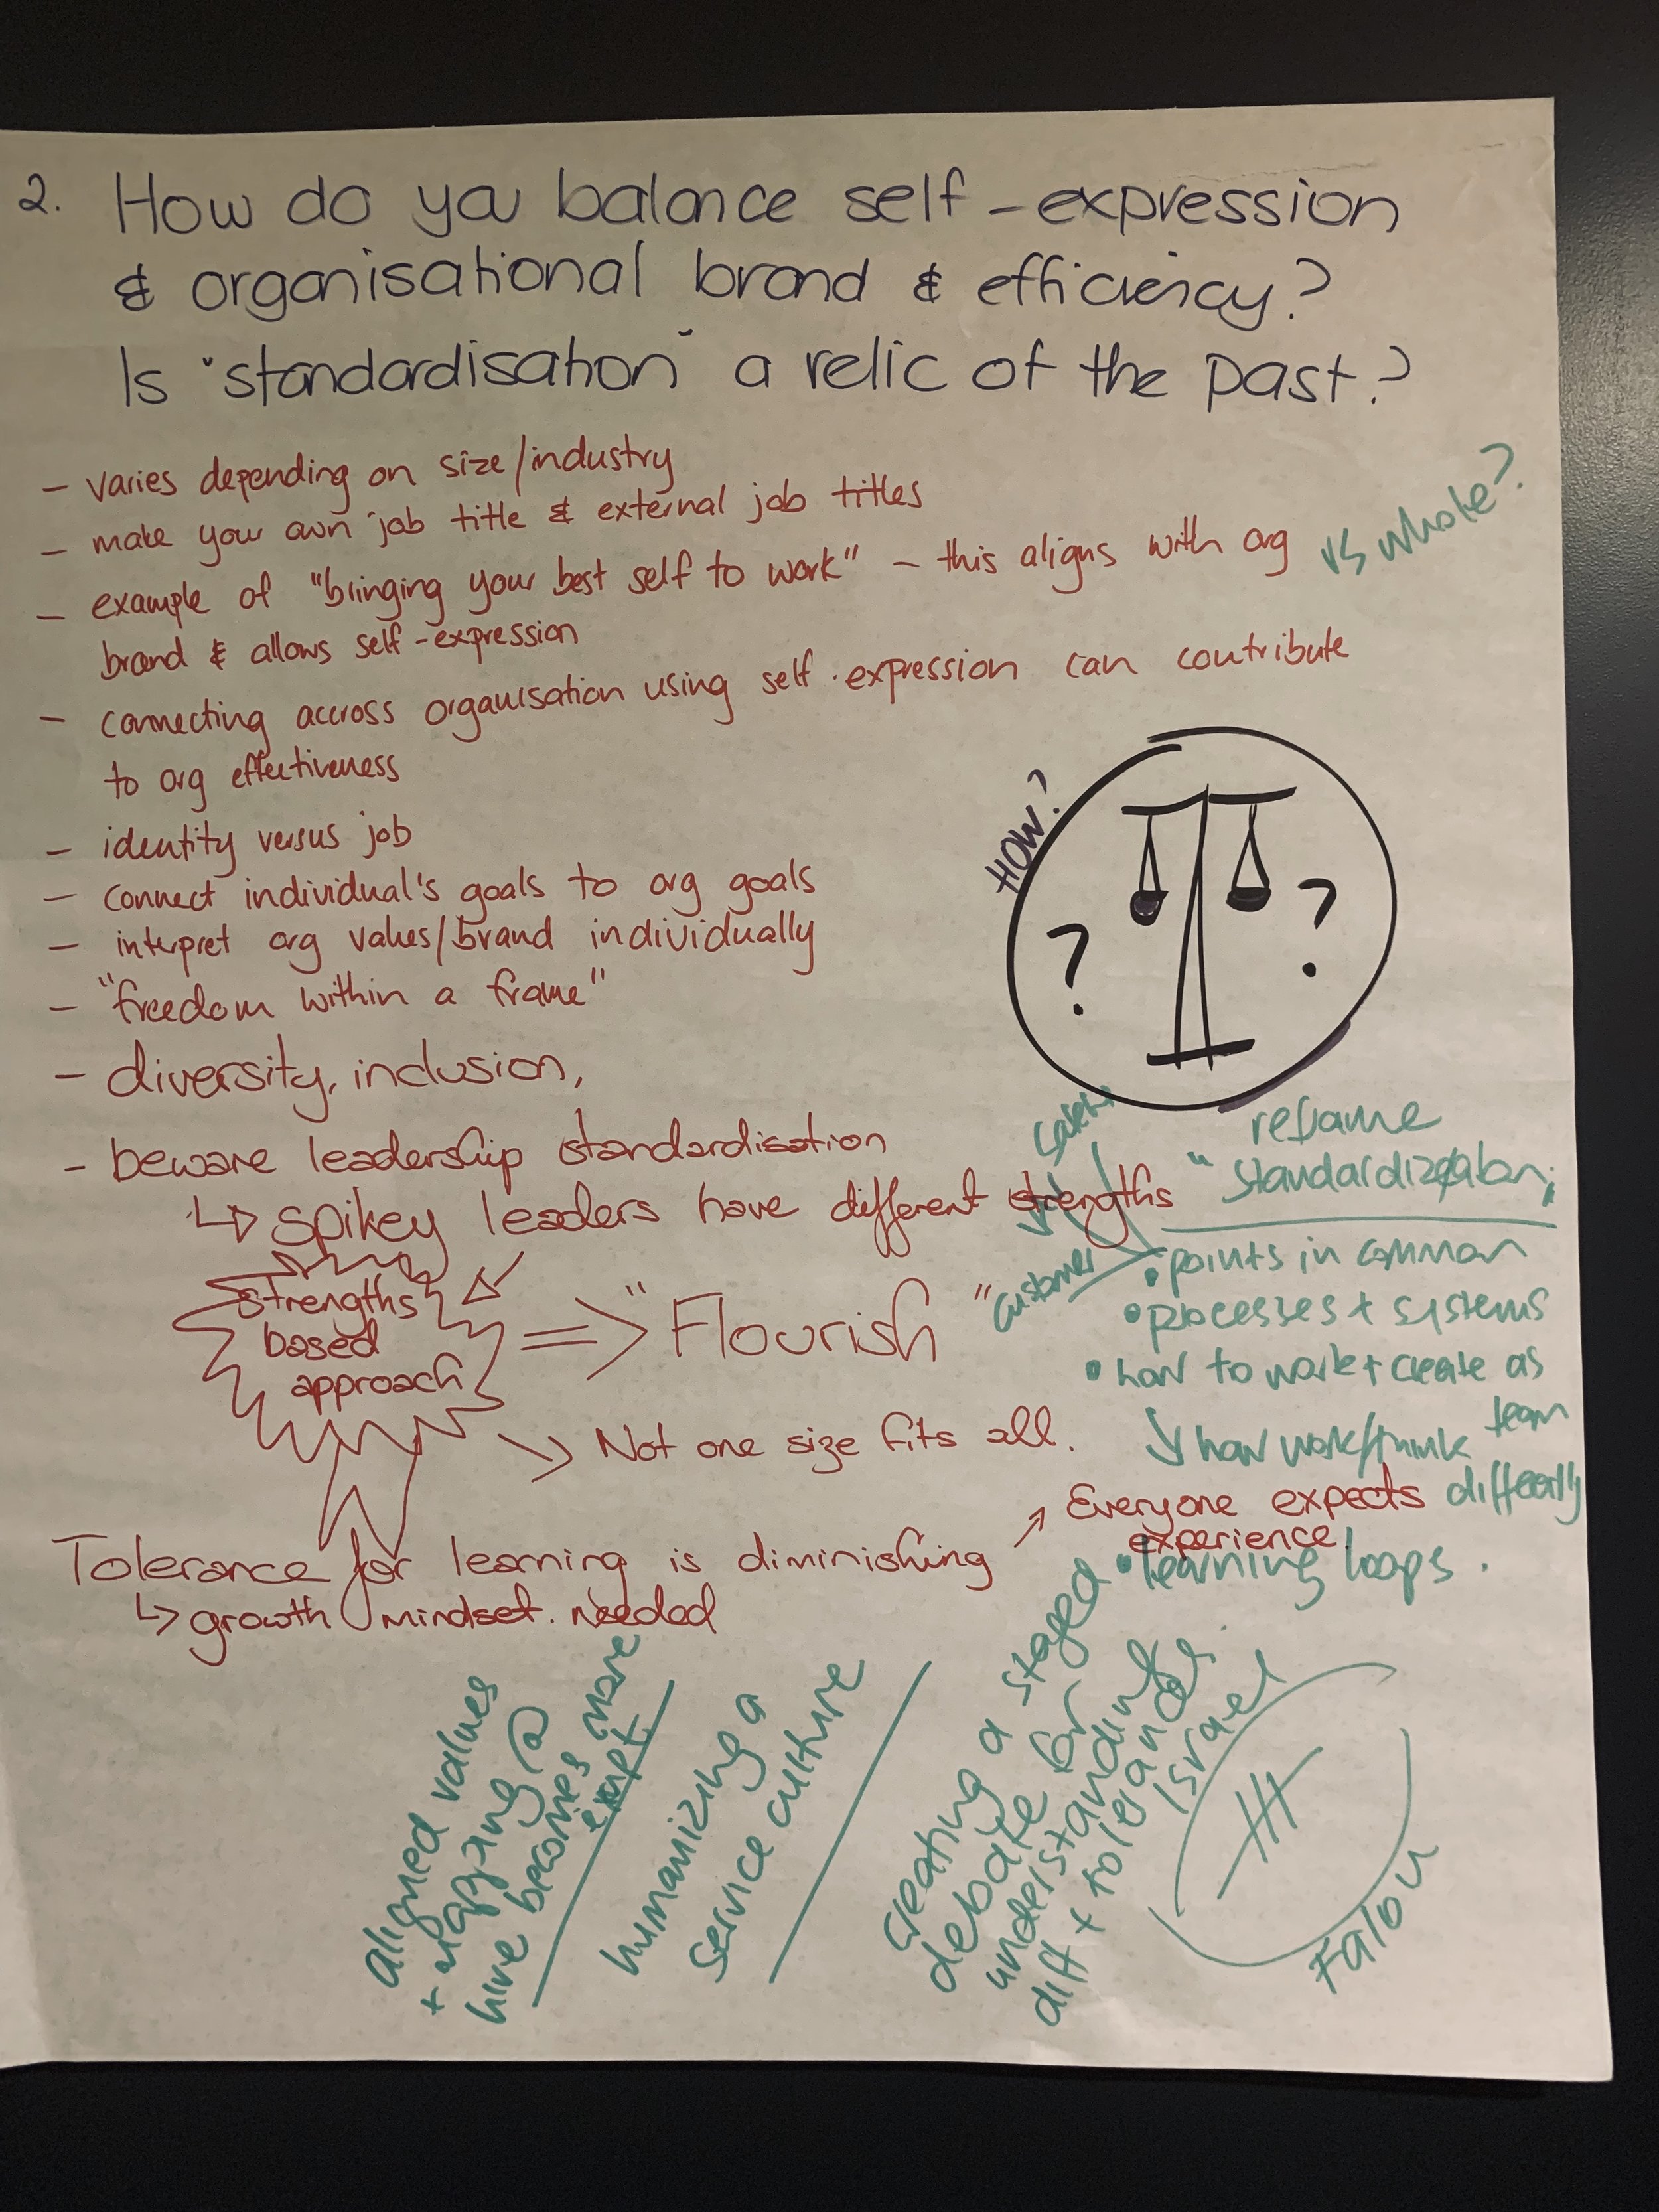 2. How do you balance self-expression
& organisational brand & efficiency?
Is "standardisation" a relic of the past?
- varies depending on size/industry
- make your own job title & external job titles
- example of "bringing your best self to work" - this aligns with org
vs whole?
brand & allows self-expression
- connecting accross organisation using self-expression can contribute
to org effectiveness
- identity versus job
- connect individual's goals to org goals
- interpret org values/brand individually
- "freedom within a frame"
- diversity, inclusion,
- beware leadership standardisation
↳ spikey leaders have different strengths
strengths
based
approach
⇒ "Flourish"
→ Not one size fits all.
Tolerance for learning is diminishing
↗ Everyone expects
experience!
↳ growth mindset needed
HOW?
? ?
customer
reframe
"standardization"
• points in common
• processes + systems
• how to work + create as
team
↓ how work/think
differently
• learning loops.
aligned values
+ mapping @
hire becomes more
humanizing a
service culture
creating a staged
debate for
understanding
diff + tolerance
Israel
Falou